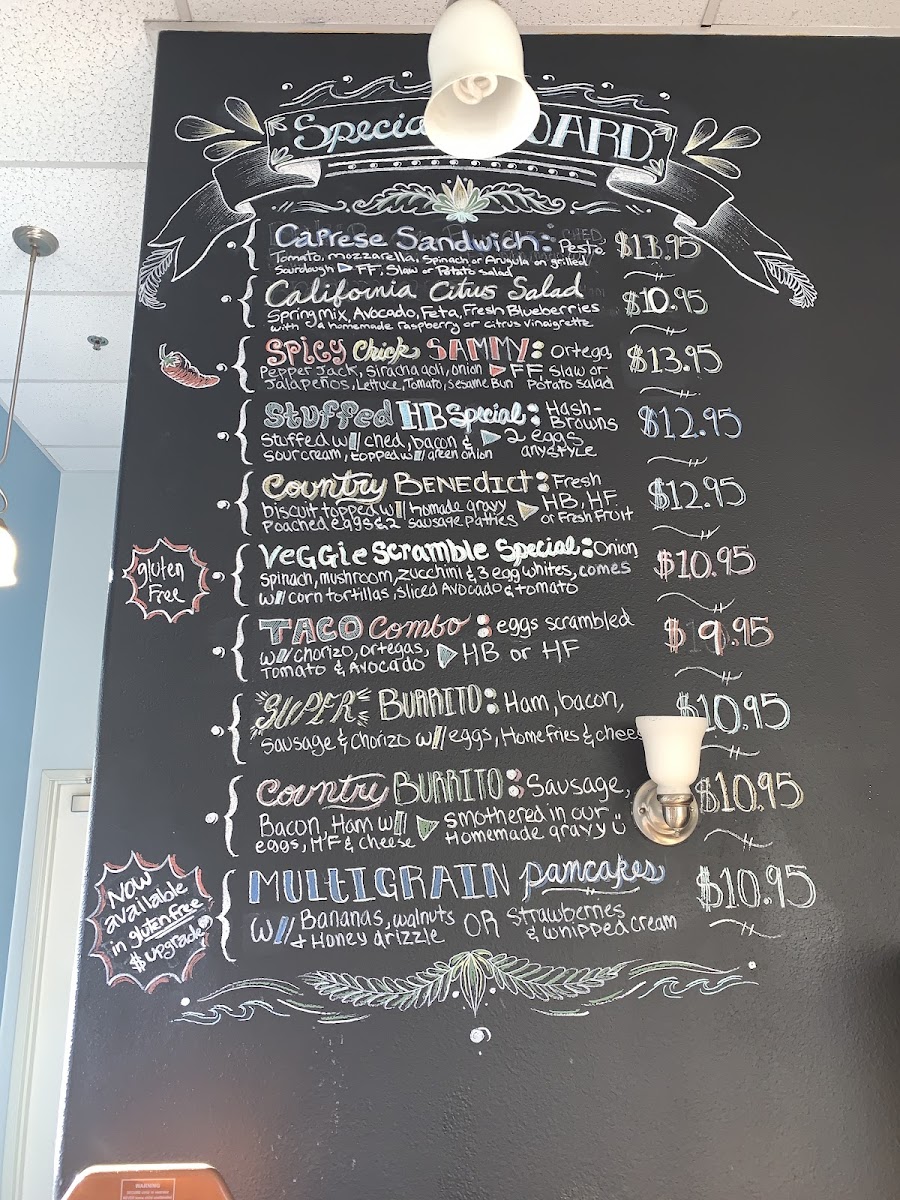 Specia OARD
Caprese Sandwich: Pesto $13.95
Tomato, mozzarella, Spinach or Arugula on grilled
Sourdough ▷ FF, Slaw or Potato salad
California Citrus Salad $10.95
Spring mix, Avocado, Feta, Fresh Blueberries
with a homemade raspberry or citrus vinaigrette
SPICY Chick SAMMY: ortega, $13.95
Pepper Jack, Siracha aoli, onion ▷ FF Slaw or
Jalapeños, Lettuce, Tomato, Sesame Bun Potato salad
Stuffed HB Special: Hash-Browns $12.95
Stuffed w// ched, bacon & ▷ 2 eggs
sour cream, topped w// green onion any style
Country BENEDICT: Fresh $12.95
biscuit topped w// homade gravy ▷ HB, HF
poached eggs & 2 sausage patties or Fresh Fruit
gluten
Free
VeGGie Scramble Special: Onion $10.95
Spinach, mushroom, zucchini & 3 egg whites, comes
w// corn tortillas, sliced Avocado & tomato
TACO Combo: eggs scrambled $9.95
w// chorizo, ortegas, ▷ HB or HF
Tomato & Avocado
SUPER BURRITO: Ham, bacon, $10.95
Sausage & chorizo w// eggs, Home fries & chees
Country BURRITO: Sausage, $10.95
Bacon, Ham w// ▷ smothered in our
eggs, HF & cheese Homemade gravy
Now
available
in gluten free
$ upgrade
MULTIGRAIN pancakes $10.95
w// Bananas, walnuts OR Strawberries
+ Honey drizzle & whipped cream
WARNING